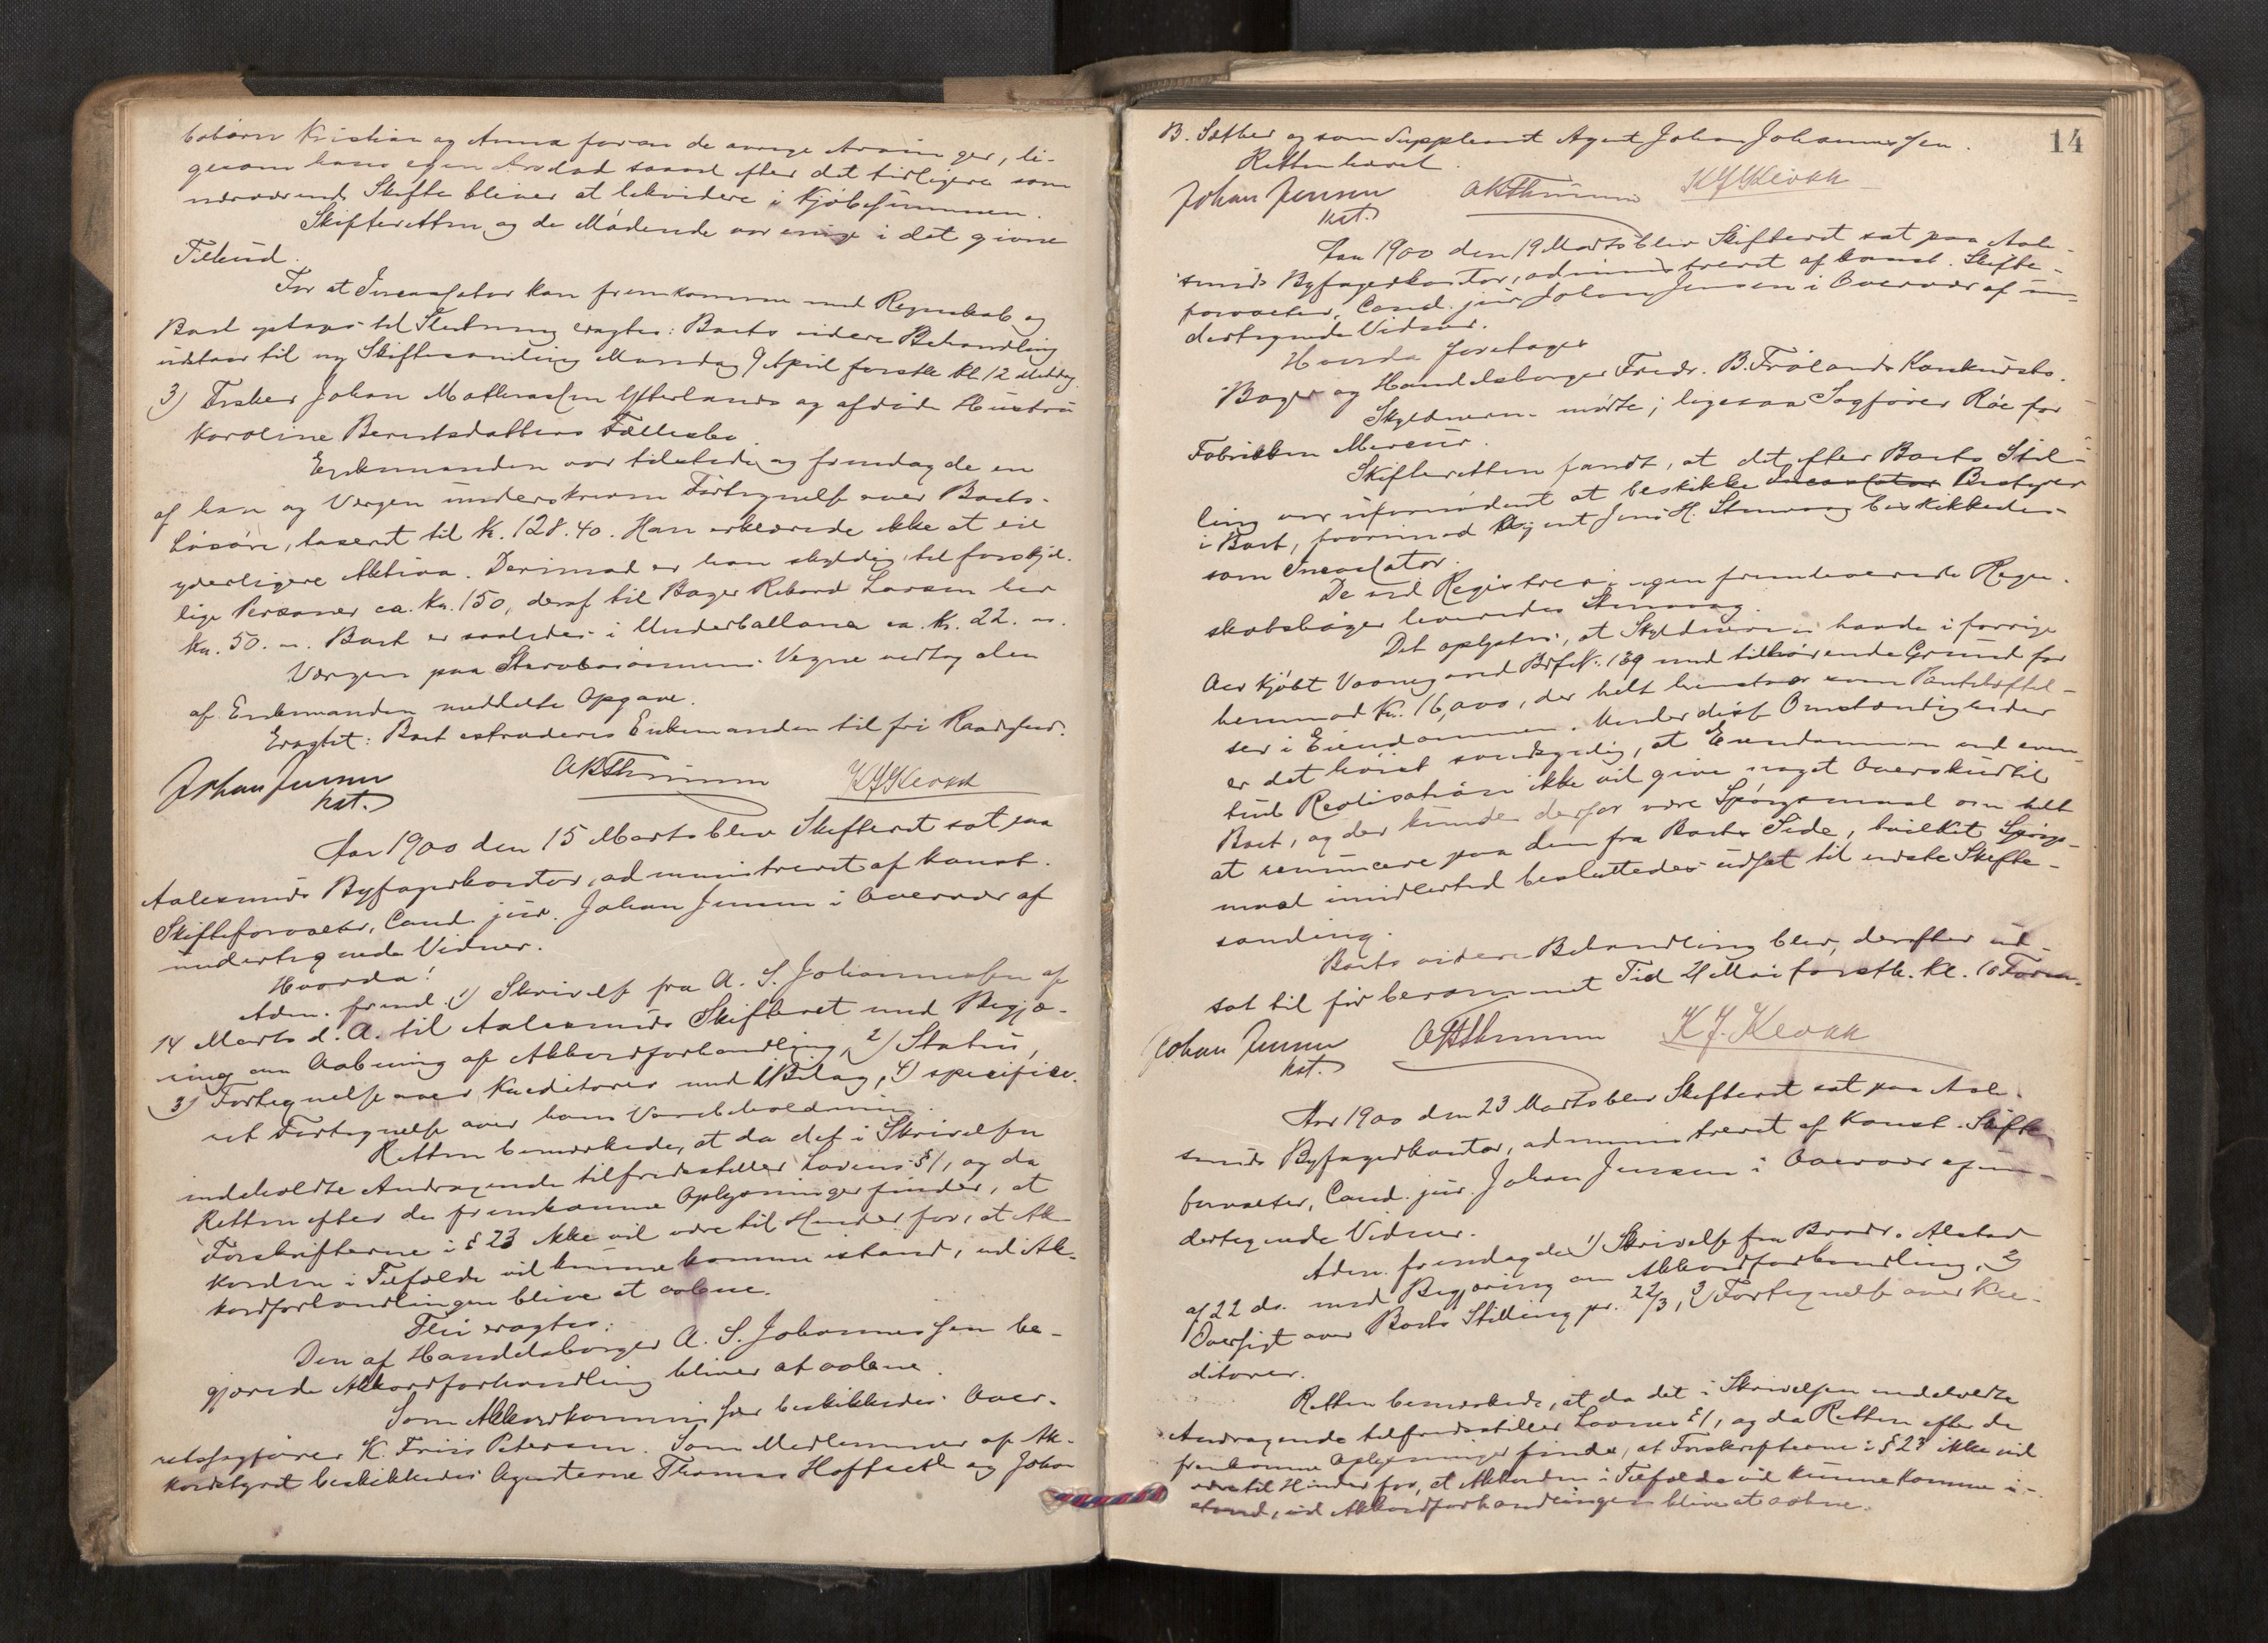 Kristian og Anna foran de øvrige Arvinger, li-
gesom hans egen Arvelod saavel efter det tidligere som
nærværende Skifte bliver at likvidere i Kjøbesummen.
Skifteretten og de Mødende var enige i det givne
Tilbud.
For at Incassator kan fremkomme med Regnskab og
Boet optages til Slutning eragtes: Boets videre Behandling
udstaar til ny Skiftesamling Mandag 9 April førstk. Kl. 12 Middag.
3) Fisker Johan Mathiassen Ytterlands og afdøde Hustru
Karoline Berntsdatters Fællesbo.
Enkemanden var tilstede og fremlagde en
af ham og Vergen underskreven Fortegnelse over Boets
Løsøre, taxeret til Kr. 128.40. Han erklærede ikke at eie
yderligere Aktiva. Derimod er han skyldig til forskjel-
lige Personer ca. Kr. 150, deraf til Bager Rikard Larsen her
Kr. 50. Boet er saaledes i Underballance ca. Kr. 22.
Vergen paa Stervbosønnens Vegne vedtog den
af Enkemanden meddelte Opgave.
Eragtet: Boet extraderes Enkemanden til fri Raadighed.
Johan Jensen
kst.
AKThrumm
K J Kleokk
Aar 1900 den 15 Marts blev Skifteret sat paa
Aalesunds Byfogedkontor, administreret af konst.
Skifteforvalter, Cand. jur. Johan Jensen i Overvær af
undertegnede Vidner.
Hvorda:
Adm. freml. 1) Skrivelse fra A. S. Johannessen af
14 Marts d. A. til Aalesunds Skifteret med Begjæ-
ring om Aabning af Akkordforhandling, 2) Status,
3) Fortegnelse over Kreditorer med 1 Bilag, 4) specifice-
ret Fortegnelse over hans Varebeholdning.
Retten bemærkede, at da det i Skrivelsen
indeholdte Andragende tilfredsstiller Lovens §1, og da
Retten efter de fremkomne Oplysninger finder, at
Forskrifterne i §23 ikke vil være til Hinder for, at Ak-
korden i Tilfælde vil kunne komme istand, vil Ak-
kordforhandlingen blive at aabne.
Thi eragtes:
Den af Handelsborger A. S. Johannessen be-
gjærede Akkordforhandling bliver at aabne.
Som Akkordkommissær beskikkedes Over-
retssagfører K. Friis Petersen. Som Medlemmer af Ak-
kordstyret beskikkedes Agenterne Thomas Hoffseth og Johan
14
B. Sæther og som Suppleant Agent Johan Johannessen.
Retten hævet.
Johan Jensen
kst.
AKThrumm
K J Kleokk
Aar 1900 den 19 Marts blev Skifteret sat paa Aale-
sunds Byfogedkontor, administreret af konst. Skifte-
forvalter, Cand. jur. Johan Jensen i Overvær af un-
dertegnede Vidner.
Hvorda foretages
Bager og Handelsborger Fredr. B. Frølands Konkursbo.
Skyldneren mødte; ligesaa Sagfører Röe for
Fabrikken Mercur.
Skifteretten fandt, at det efter Boets Stil-
ling var ufornødent at beskikke Incassator Bestyrer
i Boet, hvorimod Agent Jens H. Stenvaag beskikkedes
som Incassator.
De ved Registreringen fremleverede Regn-
skabsbøger leveredes Stenvaag.
Det oplystes, at Skyldneren havde i forrige
Aar kjøbt Vaaningen Brf. N. 139 med tilhørende Grund for
Kr. 16,000, der helt henstaar som Panteheftel-
ser i Eiendommen. Under disse Omstændigheder
er det høist sandsynlig, at Eiendommen ved even-
tuel Realisation ikke vil give noget Overskud til
Boet, og der kunde derfor være Spørgsmaal om helt
at renuncere paa den fra Boets Side, hvilket Spørgs-
maal imidlertid besluttedes udsat til næste Skifte-
samling.
Boets videre Behandling blev derefter ud-
sat til før berammet Tid 21 Mai førstk. Kl. 10 Form.
Johan Jensen
kst.
AKThrumm
K J. Kleokk
Aar 1900 den 23 Marts blev Skifteret sat paa Aale-
sunds Byfogedkontor, administreret af konst. Skifte-
forvalter, Cand. jur. Johan Jensen i Overvær af un-
dertegnede Vidner.
Adm. fremlagde 1) Skrivelse fra Brødr. Alstad
af 22 ds. med Begjæring om Akkordforhandling, 2)
Oversigt over Boets Stilling pr. 22/3, 3) Fortegnelse over Kre-
ditorer.
Retten bemærkede, at da det i Skrivelsen indeholdte
Andragende tilfredsstiller Lovens §1, og da Retten efter de
fremkomne Oplysninger finder, at Forskrifterne i §23 ikke vil
være til Hinder for, at Akkorden i Tilfælde vil kunne komme i-
stand, vil Akkordforhandlingen blive at aabne.